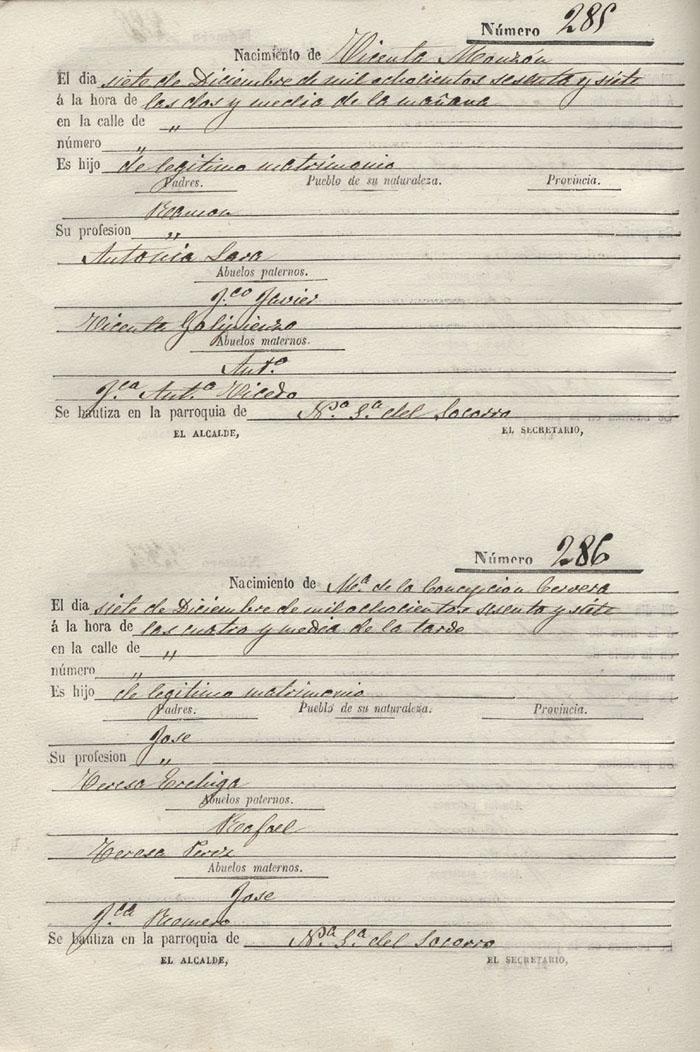 Número 285
Nacimiento de Vicenta Monzón
El dia siete de Diciembre de mil ochocientos sesenta y siete
á la hora de las dos y media de la mañana
en la calle de "
número "
Es hijo de legitimo matrimonio
Padres. Pueblo de su naturaleza. Provincia.
Ramon
Su profesion "
Antonia Lara
Abuelos paternos.
Fco Javier
Vicenta Galipienzo
Abuelos maternos.
Anto
Fca Anta Vicedo
Se bautiza en la parroquia de Na Sa del Socorro
EL ALCALDE, EL SECRETARIO,
Número 286
Nacimiento de Ma de la Concepcion Cervera
El dia siete de Diciembre de mil ochocientos sesenta y siete
á la hora de las cuatro y media de la tarde
en la calle de "
número "
Es hijo de legitimo matrimonio
Padres. Pueblo de su naturaleza. Provincia.
Jose
Su profesion "
Teresa
Abuelos paternos.
Rafael
Teresa Perez
Abuelos maternos.
Jose
Fca Romero
Se bautiza en la parroquia de Na Sa del Socorro
EL ALCALDE, EL SECRETARIO,